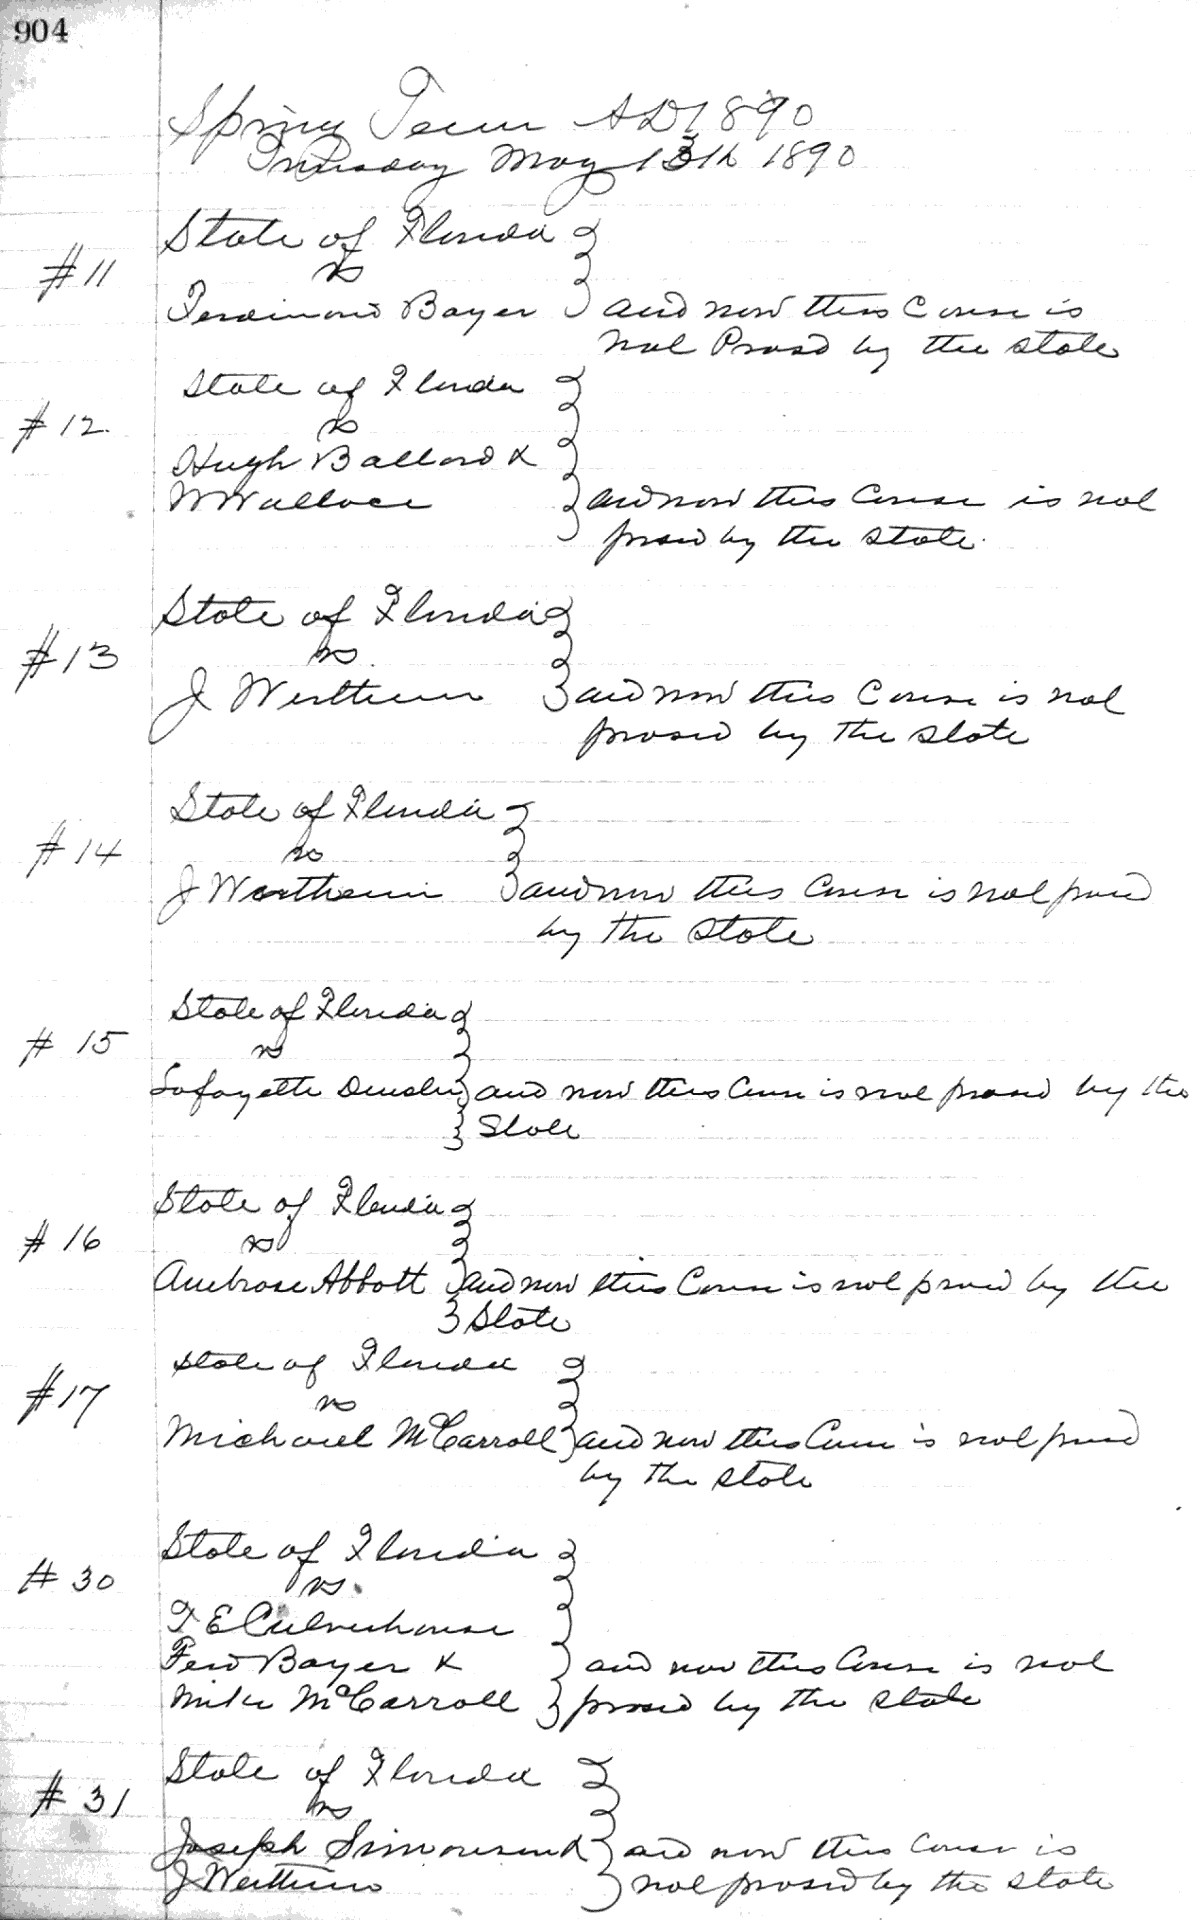 904
Spring Term AD 1890
Thursday May 15th 1890
State of Florida
#11
vs
Ferdinand Bayer and now this Cause is
Nol Prosd by the State
State of Florida
#12.
vs
Hugh Ballard &
W Wallace and now this Cause is nol
prosed by the State.
State of Florida
#13
vs
J Wertheim and now this Cause is nol
prosed by the State
State of Florida
#14
vs
J Wertheim and now this Cause is nol prosed
by the State
State of Florida
#15
vs
Lafayette and now this Cause is nol prosed by the
State
State of Florida
#16
vs
Ambrose Abbott and now this Cause is nol prosed by the
State
State of Florida
#17
vs
Michael McCarroll and now this Cause is nol prosed
by the State
State of Florida
#30
vs.
E Culverhouse
Ferd Bayer & and now this Cause is nol
Mike McCarroll prosed by the State
State of Florida
#31
vs
Joseph and now this Cause is
J Wertheim nol prosed by the State